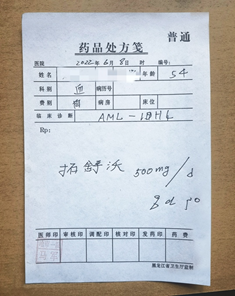 普通
药品处方笺
医院 2022年6月8日 时
姓名 年龄 54
科别 血 病历号
费别 病房 床位
临床诊断 AML-IDH1
Rp:
拓舒沃 500mg/d
qd po
医师印 审核印 调配印 核对印 发药印 药费
黑龙江省卫生厅监制